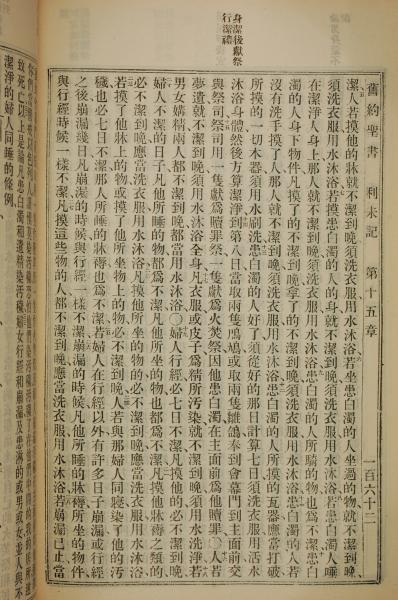 身潔後獻祭
行潔禮
舊約聖書 利未記 第十五章 一百六十二
潔人若摸他的牀就不潔到晚須洗衣服用水沐浴若坐患白濁的人坐過的物就不潔到晚
須洗衣服用水沐浴若摸患白濁的人的身就不潔到晚須洗衣服用水沐浴若患白濁人唾
在潔淨人身上那人就不潔到晚須洗衣服用水沐浴患白濁的人所騎的物也爲不潔患白
濁的人身下物件凡摸了的不潔到晚拿了的不潔到晚須洗衣服用水沐浴患白濁的人若
沒有洗手摸了人那人就不潔到晚須洗衣服用水沐浴患白濁的人所摸的瓦器應當打破
所摸的一切木器須用水刷洗患白濁的人好了須從好的那日計算七日須洗衣服用活水
沐浴身體然後方算潔淨到第八日當取兩隻鳲鳩或取兩隻雛鴿奉到會幕門到主面前交
與祭司祭司用一隻獻爲贖罪祭一隻獻爲火焚祭因他患白濁在主面前爲他贖罪○人若
夢遺就不潔到晚須用水沐浴全身凡衣服或皮子爲精所污染就不潔到晚須用水洗淨若
男女媾精兩人都不潔到晚都當用水沐浴○婦人行經必七日不潔凡摸他的必不潔到晚
婦人不潔的日子凡他所睡的物都爲不潔凡他所坐的物也都爲不潔凡摸他牀褥之類的
必不潔到晚應當洗衣服用水沐浴凡摸他所坐的物的必不潔到晚應當洗衣服用水沐浴
若摸了他牀上的物或摸了他所坐物上的物必不潔到晚人若與那婦人同寢染了他的污
穢也必七日不潔那人所睡的牀褥也爲不潔若婦人在行經以外有許多日子崩漏或行經
之後崩漏幾日凡崩漏的時候與行經一樣不潔崩漏的時候凡他所睡的牀褥所坐的物件
與行經時候一樣不潔凡摸這些物的人都不潔到晚應當洗衣服用水沐浴若崩漏已止當
致死亡以上是論凡患白濁和遺精染污穢婦女行經和崩漏及患淋的或男或女並人與不
潔淨的婦人同睡的條例